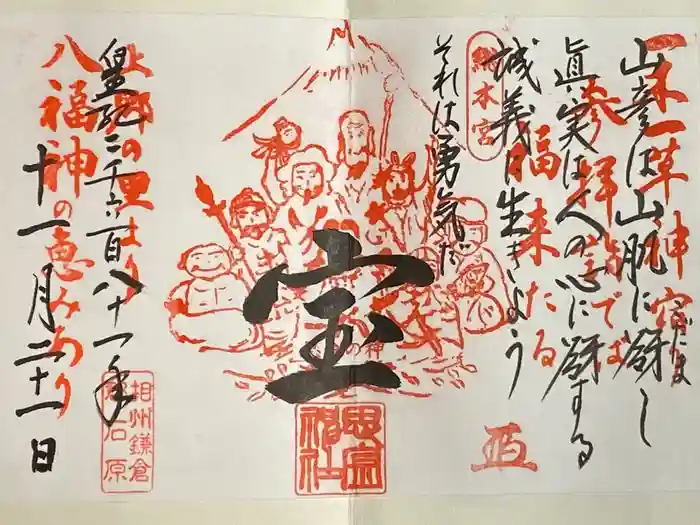 一木一草神宿
こだま
参拝詣では
福来たる
総本宮
山彦は山肌に谺し
眞実は人の心に谺する
誠義日生きよう
それは勇気だ
宝
の神
思金神社
上郷の里より
八福神の恵みあり
皇紀二千六百八十一年
十一月二十一日
相州鎌倉
石原